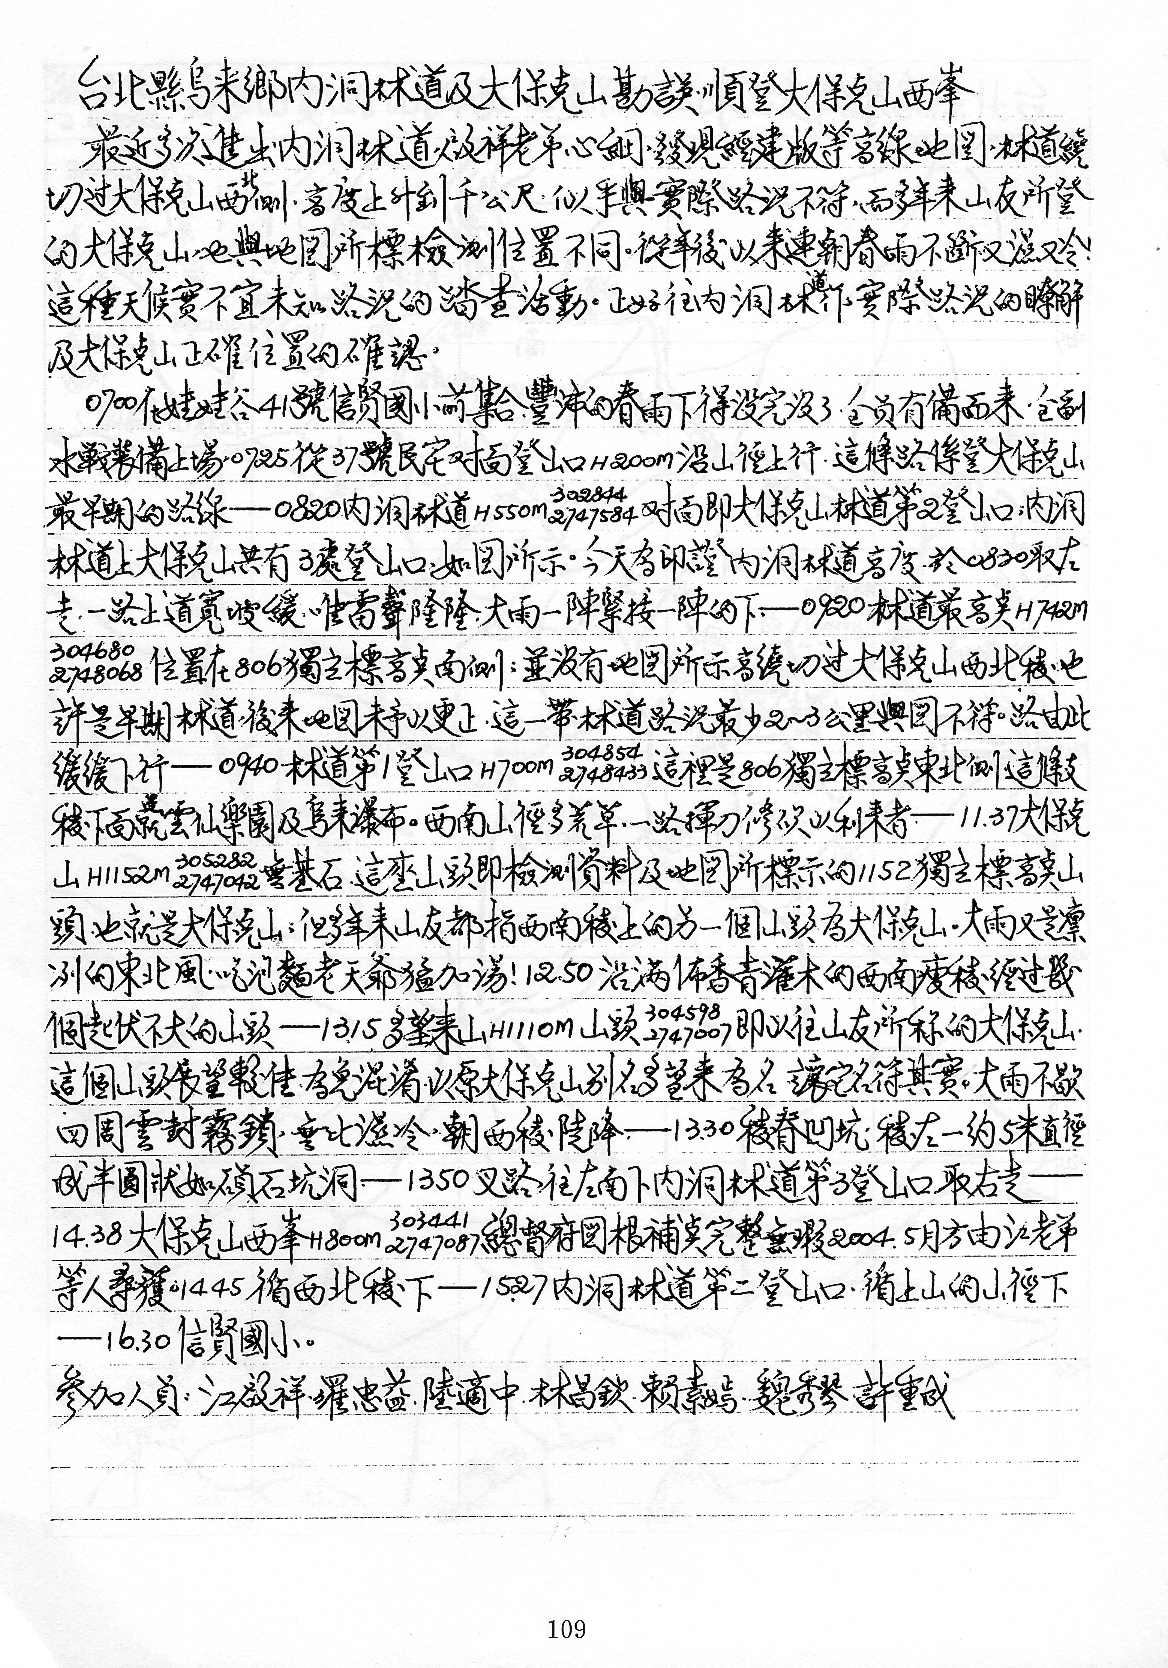 台北縣烏来鄉內洞林道及大保克山勘誤.順登大保克山西峯
最近多次進出內洞林道.啟祥老弟心細.發現經建版等高線地図.林道繞
切过大保克山西北側.高度上升到千公尺.似乎與實際路況不符.而多年来山友所登
的大保克山.也與地図所標檢測位置不同。從年後以来連朝春雨不斷又濕又冷!
這種天候實不宜未知路況的踏查活動。正好往內洞林道作實際路況的瞭解
及大保克山正確位置的確認。
0700在娃娃谷41號信賢國小前集合.豐沛的春雨下得沒完沒了.全員有備而来.全副
水戰裝備上場.0725從37號民宅对面登山口H200m沿山徑上行.這條路係登大保克山
最早期的路線──0820內洞林道H550m 302844 2747584 对面即大保克山林道第2登山口;內洞
林道上大保克山共有3處登山口;如図所示。今天為印證內洞林道高度.於0830取左
走.一路上道寬坡緩.唯雷聲隆隆.大雨一陣緊接一陣的下.──0920林道最高点H742m
304680 2748068 位置在806獨立標高点南側;並沒有地図所示高繞切过大保克山西北稜.也
許是早期林道.後来地図未予以更正.這一帶林道路況最少2~3公里與図不符。路由此
緩緩下行──0940林道第1登山口H700m 304854 2748433 這裡是806獨立標高点東北側這條支
稜下面就是雲仙樂園及烏来瀑布。西南山徑多荒草.一路揮刀修砍以利来者──11.37大保克
山H1152m 305282 2747042 無基石.這座山頭即檢測資料及地図所標示的1152獨立標高点山
頭.也就是大保克山;但多年来山友都指西南稜上的另一個山頭為大保克山。大雨又是凛
冽的東北風.吃泡麵老天爺猛加湯!12.50沿滿佈香青灌木的西南瘦稜.經过幾
個起伏不大的山頭──1315多望来山H1110m山頭 304598 2747007 即以往山友所称的大保克山.
這個山頭展望較佳.為免混淆以原大保克山別名多望来為名.讓它名符其實。大雨不歇
四周雲封霧鎖.無比濕冷.朝西稜陡降.──13.30稜脊凹坑.稜左一約5米直徑
成半圓狀如碩石坑洞.──1350叉路.往左南下內洞林道第3登山口.取右走──
14.38大保克山西峯H800m 303441 2747087 總督府図根補点完整無瑕2004.5月方由江老弟
等人尋獲。1445循西北稜下──1527內洞林道第二登山口.循上山的山徑下
──16.30信賢國小。
參加人員:江啟祥.羅忠益.陸適中.林昌欽.賴素嫣.魏秀琴.許重成
109